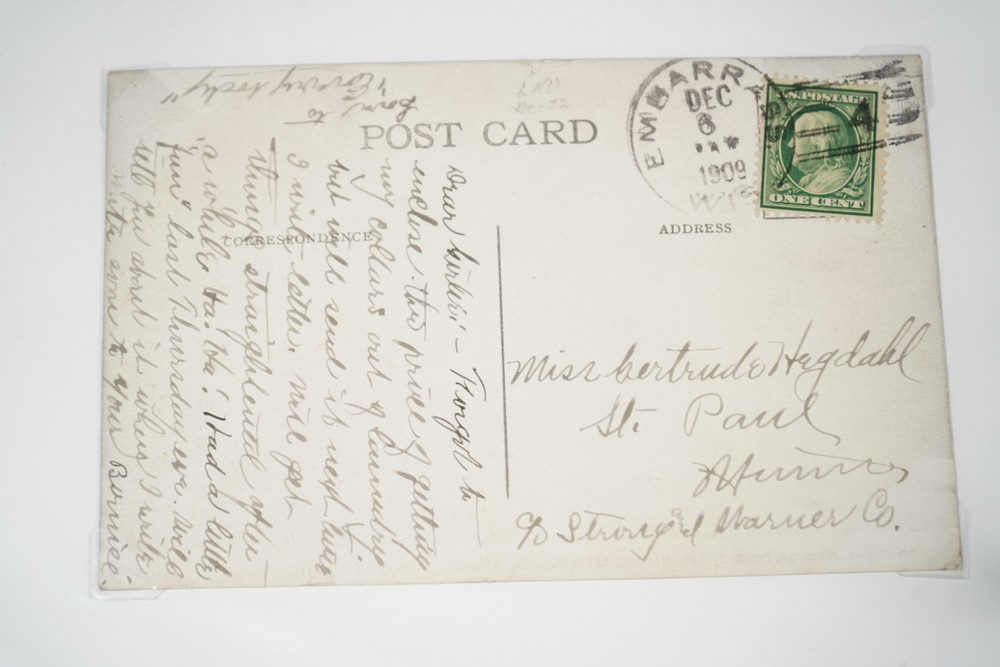 POST CARD
CORRESPONDENCE
ADDRESS
EMBARRASS
DEC
6
1909
WIS
U.S. POSTAGE
ONE CENT
4
Dear Gertie:- Forgot to
enclose the price of getting
my collars out of laundry
but will send it next time
I write letter. Will get
things straightened after
a while Ha. Ha! Had a little
"fun" last Thursday eve. Will
tell you about it when I write
write soon to your Bernie.
Love
to
"Everybody"
Miss Gertrude Hegdahl
St. Paul
Minn
c/o Strong & Warner Co.